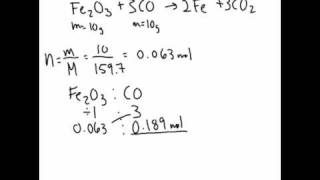 Fe₂O₃ + 3CO → 2Fe + 3CO₂
m=10g m=10g
n = m/M = 10/159.7 = 0.063mol
Fe₂O₃ : CO
÷1 : 3
0.063 : 0.189mol